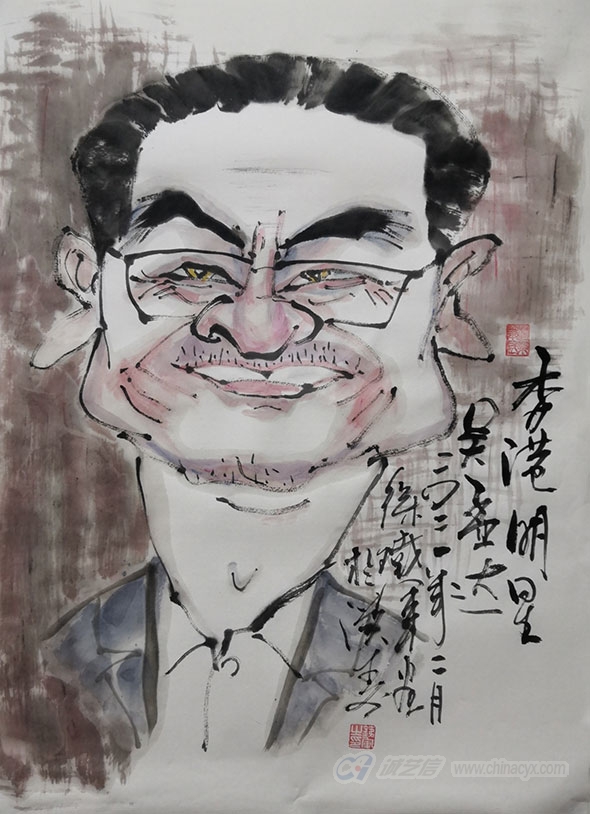 香港明星
吴孟达
二〇二一年二月
徐鐵
於
诚艺信 www.chinacyx.com